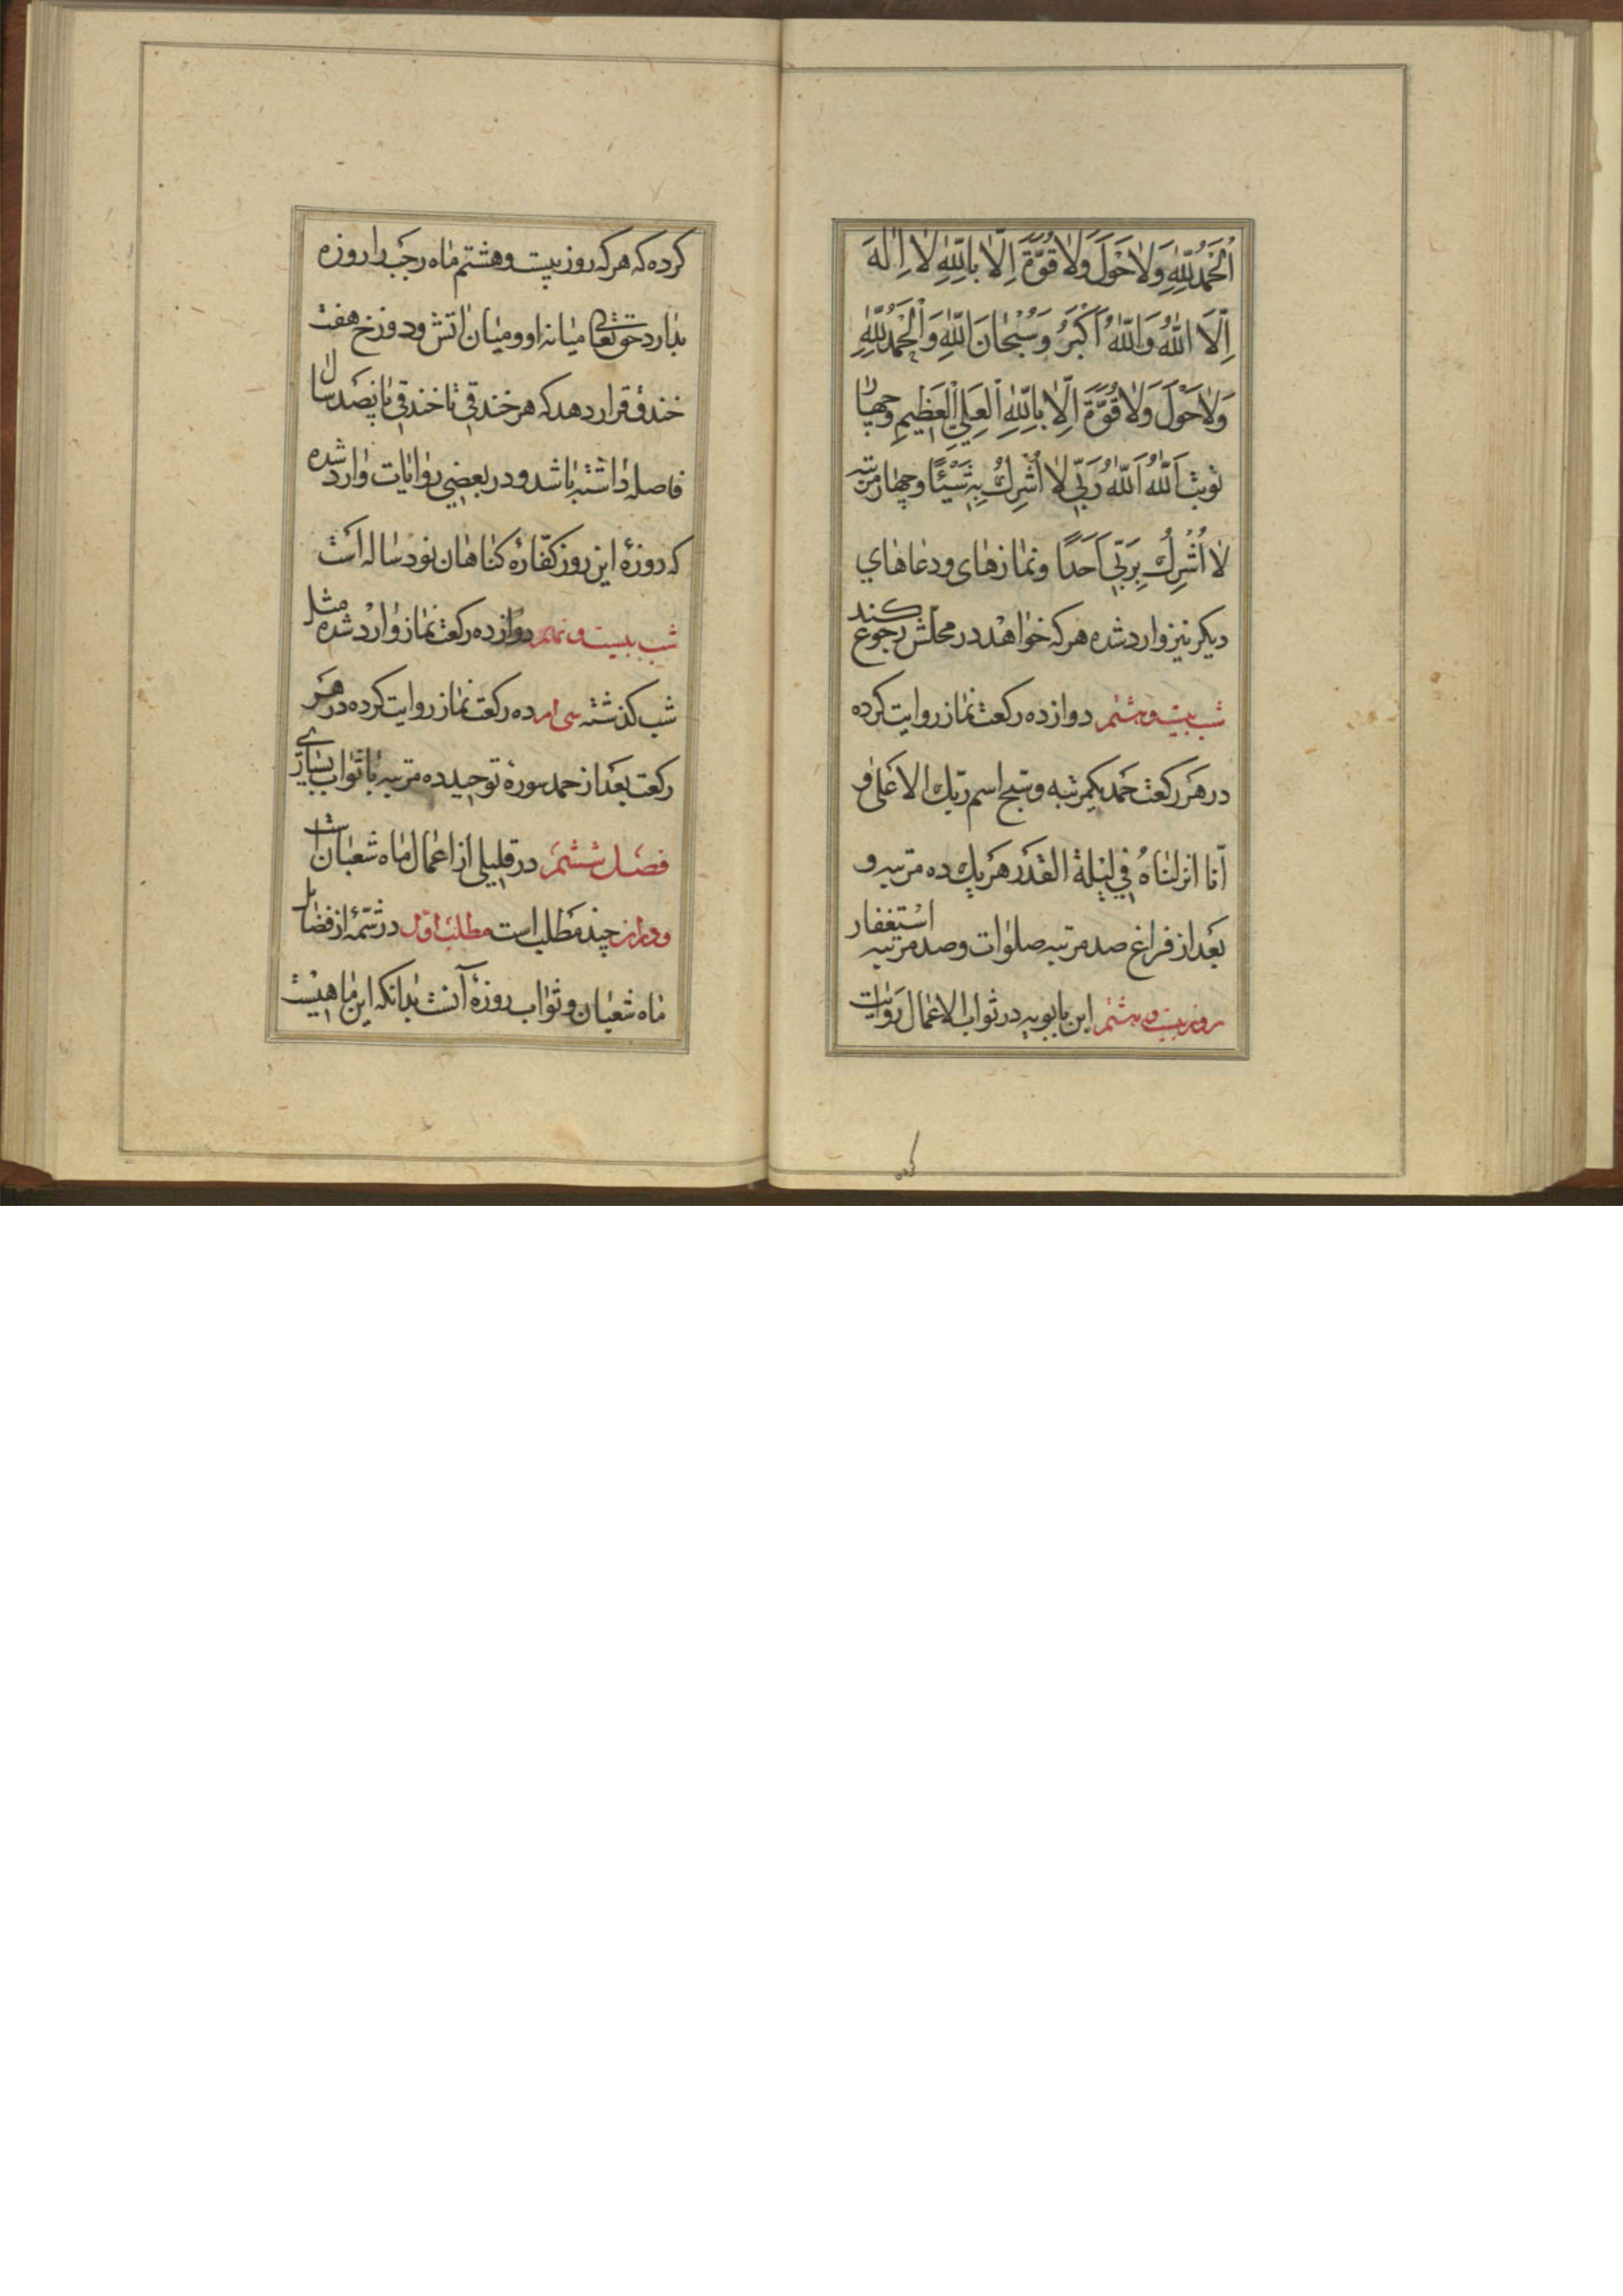 اَلْحَمْدُ لِلّٰهِ وَلاٰ حَوْلَ وَلاٰ قُوَّةَ اِلّاٰ بِاللّٰهِ لاٰ اِلٰهَ
اِلَّا اللّٰهُ وَاللّٰهُ اَكْبَرُ وَسُبْحٰانَ اللّٰهِ وَالْحَمْدُ لِلّٰهِ
وَلاٰ حَوْلَ وَلاٰ قُوَّةَ اِلّاٰ بِاللّٰهِ الْعَلِيِّ الْعَظِيمِ وچهار
نوبت اَللّٰهُ اَللّٰهُ رَبّي لاٰ اُشْرِكُ بِهِ شَيْئًا وچهار مرتبه
لاٰ اُشْرِكُ بِرَبّي اَحَدًا ونمازهاى ودعاهاي
ديكر نيز وارد شده هر كه خواهد در محلش رجوع كند
شب بيست وهشتم دوازده ركعت نماز روايت كرده
در هر ركعت حمد يكمرتبه وسبح اسم ربك الاعلى و
انّا انزلناهُ في ليلة القدر هر يك ده مرتبه و
بعد از فراغ صد مرتبه صلوات وصد مرتبه استغفار
روز بيست وهشتم ابن بابويه در ثواب الاعمال روايت
كرده
كرده كه هر كه روز بيست وهشتم ماه رجب را روزه
بدارد حق تعالى ميانه او وميان اتش ودوزخ هفت
خندق قرار دهد كه هر خندقي تا خندقي پانصد سال
فاصله داشته باشد ودر بعضي روايات وارد شده
كه روزهٔ اين روز كفّارهٔ كناهان نود ساله است
شب بيست ونهم دوازده ركعت نماز وارد شده مثل
شب كذشته سى ام ده ركعت نماز روايت كرده در هر
ركعت بعد از حمد سورهٔ توحيد ده مرتبه با ثواب بسياري
فصل ششم در قليلي از اعمال ماه شعبان است
ودر ان چند مطلب است مطلب اوّل در شمّهٔ از فضايل
ماه شعبان وثواب روزهٔ آنست بدانكه اين ماهيست